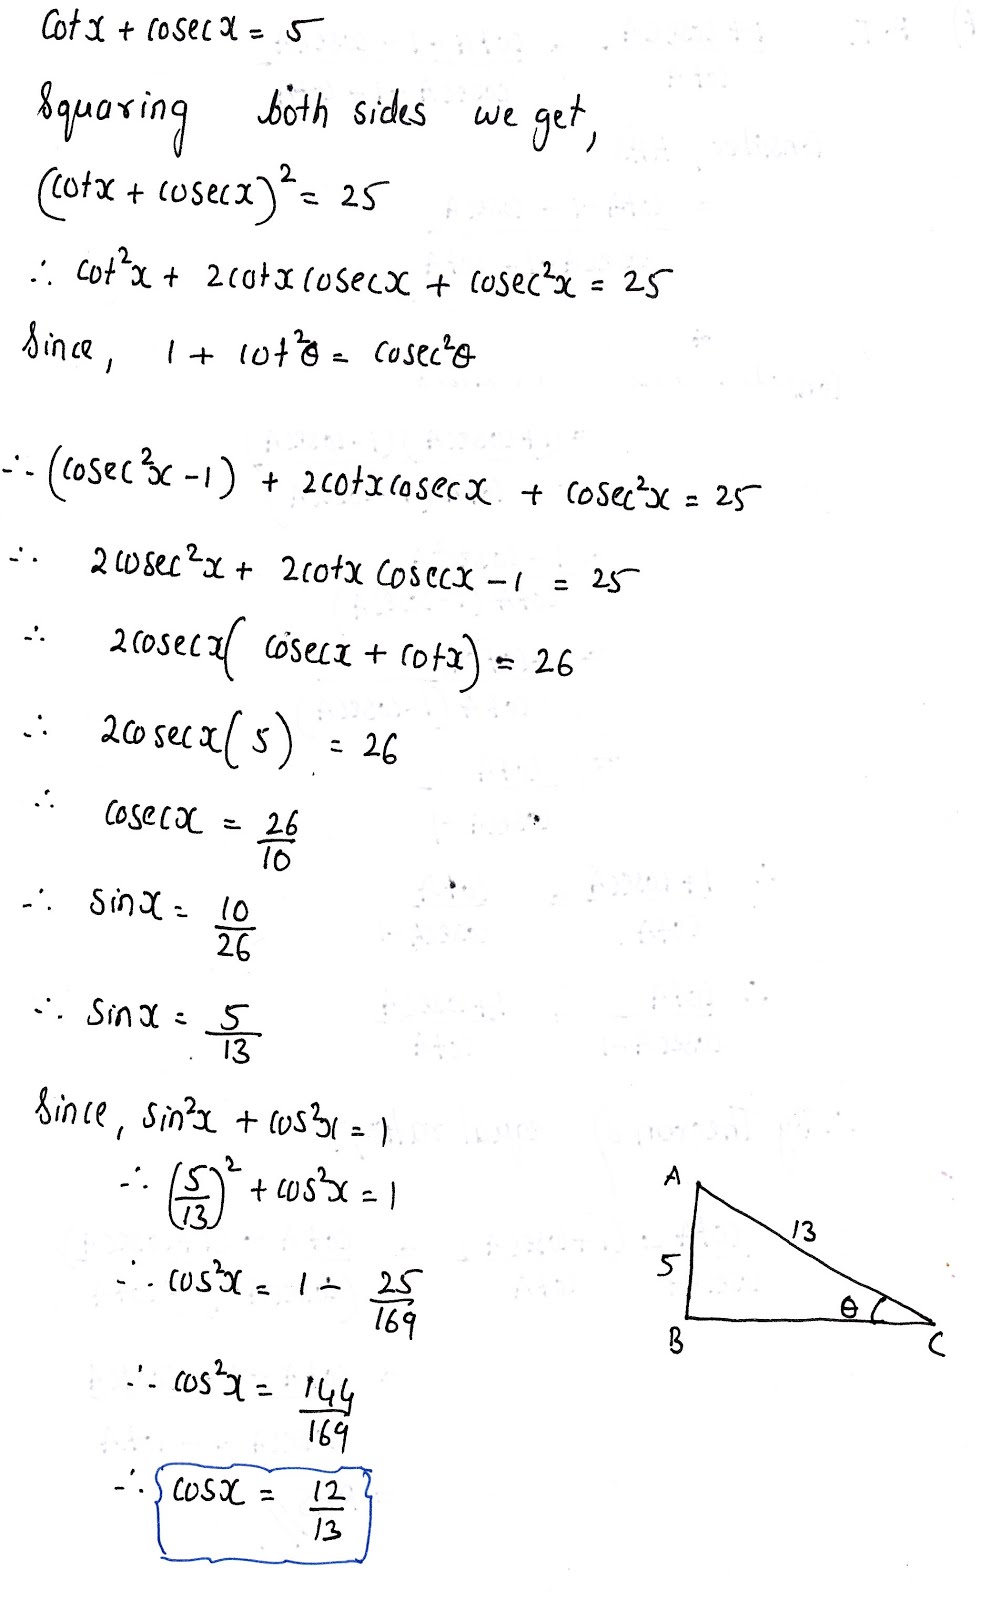 cotx + cosecx = 5
Squaring both sides we get,
(cotx + cosecx)² = 25
∴ cot²x + 2cotxcosecx + cosec²x = 25
Since, 1 + cot²θ = cosec²θ
∴ (cosec²x - 1) + 2cotxcosecx + cosec²x = 25
∴ 2cosec²x + 2cotx cosecx - 1 = 25
∴ 2cosecx( cosecx + cotx) = 26
∴ 2cosecx(5) = 26
∴ cosecx = 26/10
∴ sinx = 10/26
∴ sinx = 5/13
Since, sin²x + cos²x = 1
∴ (5/13)² + cos²x = 1
∴ cos²x = 1 - 25/169
∴ cos²x = 144/169
∴ cosx = 12/13
A
13
5
θ
B
C